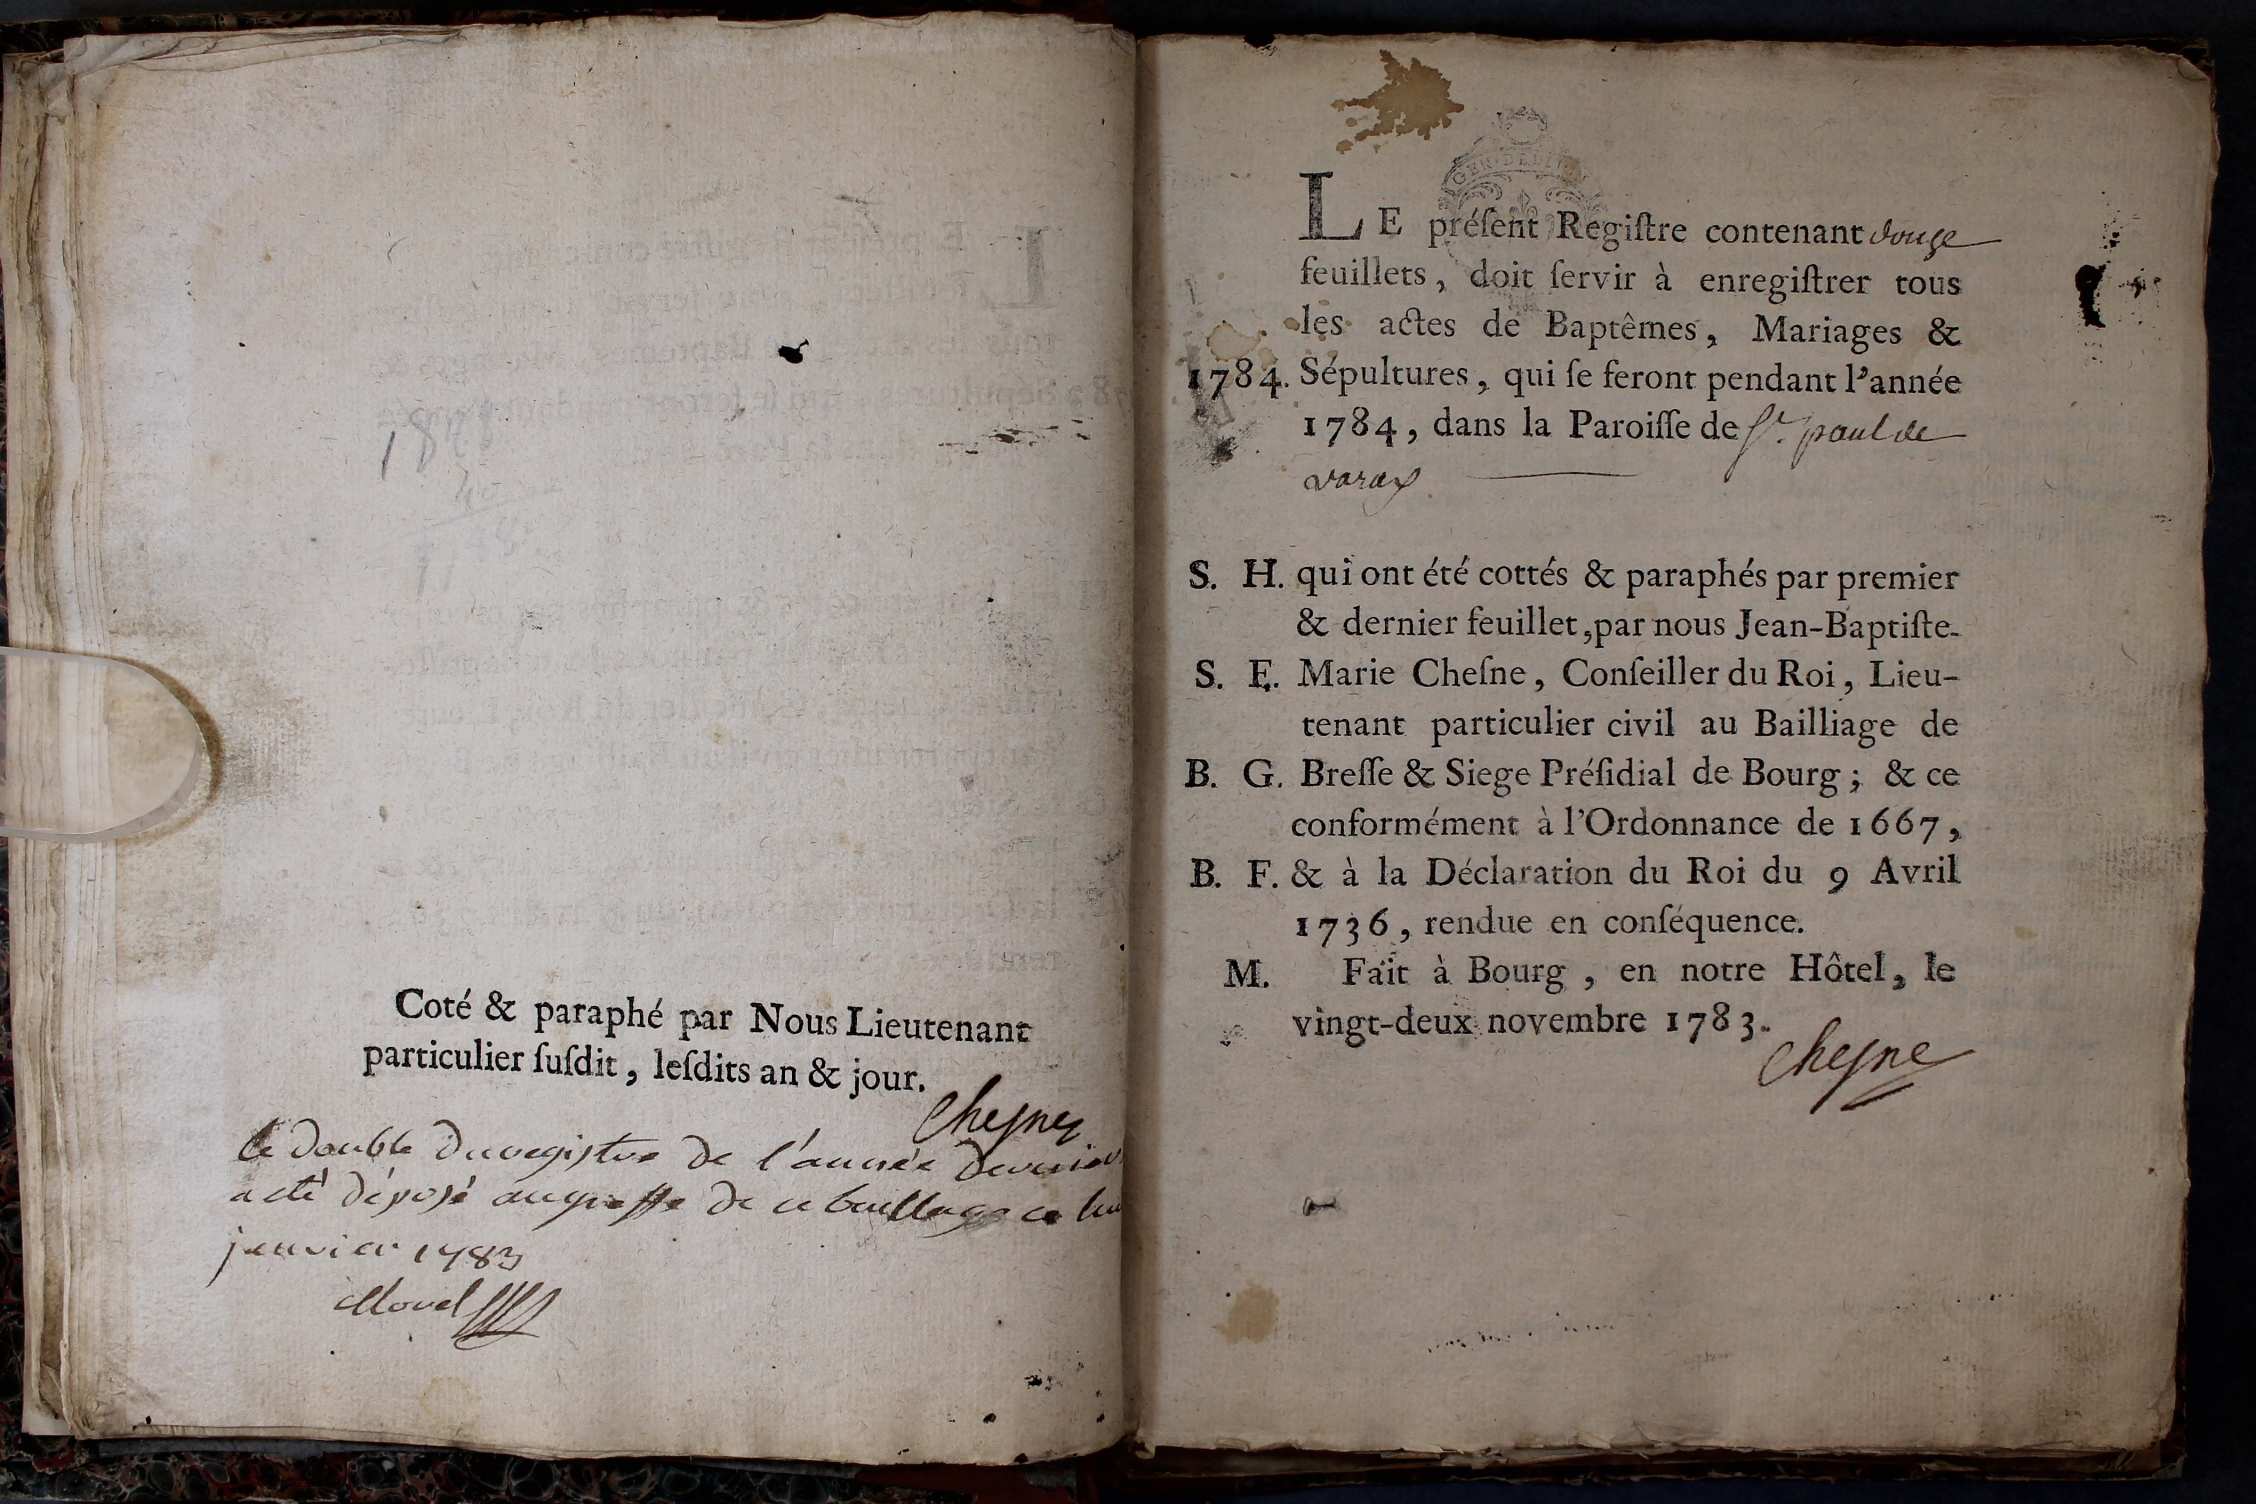 Coté & paraphé par Nous Lieutenant
particulier ſuſdit, leſdits an & jour.
Cheſne
le double du registre de l'année derniere
a eté déposé au greffe de ce bailliage ce
janvier 1783
Morel
LE préſent Regiſtre contenant douze
feuillets, doit ſervir à enregiſtrer tous
les actes de Baptêmes, Mariages &
1784. Sépultures, qui ſe feront pendant l'année
1784, dans la Paroiſſe de St. paul de
varax
S. H. qui ont été cottés & paraphés par premier
& dernier feuillet, par nous Jean-Baptiſte-
S. E. Marie Cheſne, Conſeiller du Roi, Lieu-
tenant particulier civil au Bailliage de
B. G. Breſſe & Siege Préſidial de Bourg; & ce
conformément à l'Ordonnance de 1667,
B. F. & à la Déclaration du Roi du 9 Avril
1736, rendue en conſéquence.
M. Fait à Bourg, en notre Hôtel, le
vingt-deux novembre 1783.
Cheſne